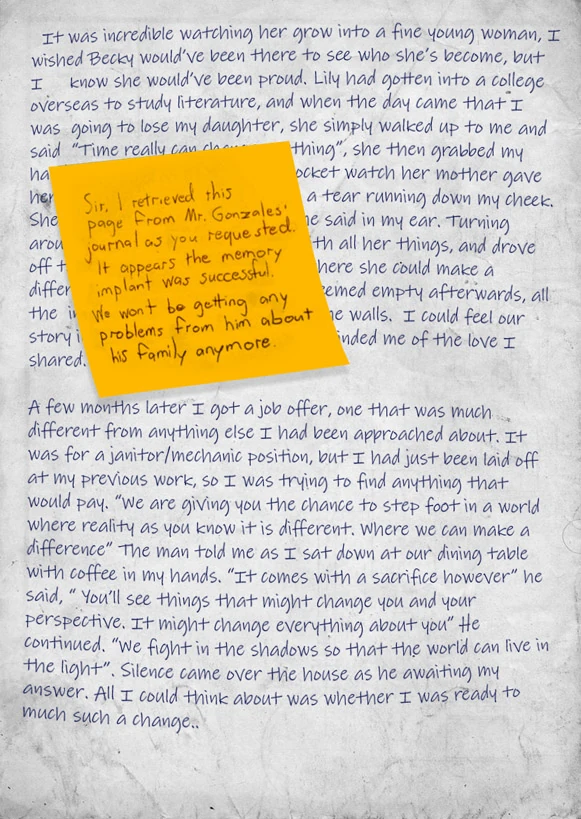 It was incredible watching her grow into a fine young woman, I
wished Becky would've been there to see who she's become, but
I know she would've been proud. Lily had gotten into a college
overseas to study literature, and when the day came that I
was going to lose my daughter, she simply walked up to me and
said "Time really can thing", she then grabbed my
ha ocket watch her mother gave
her a tear running down my cheek.
She he said in my ear. Turning
arou th all her things, and drove
off t here she could make a
differ emed empty afterwards, all
the i he walls. I could feel our
story i inded me of the love I
shared.
Sir, I retrieved this
page from Mr. Gonzales'
journal as you requested.
It appears the memory
implant was successful.
We won't be getting any
problems from him about
his family anymore.
A few months later I got a job offer, one that was much
different from anything else I had been approached about. It
was for a janitor/mechanic position, but I had just been laid off
at my previous work, so I was trying to find anything that
would pay. "We are giving you the chance to step foot in a world
where reality as you know it is different. Where we can make a
difference" The man told me as I sat down at our dining table
with coffee in my hands. "It comes with a sacrifice however" he
said, " You'll see things that might change you and your
perspective. It might change everything about you" He
continued. "We fight in the shadows so that the world can live in
the light". Silence came over the house as he awaiting my
answer. All I could think about was whether I was ready to
much such a change..